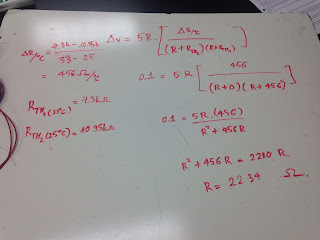 ΔR/°C = 7.3k - 10.95k / 33 - 25
= 456 Ω/°C
R_TH1(33°C) = 7.3kΩ
R_TH2(25°C) = 10.95kΩ
Δv = 5R · [ ΔR/°C / (R+R_TH2)(R+R_TH1) ]
0.1 = 5R [ 456 / (R+0)(R+456) ]
0.1 = 5R.(456) / R² + 456R
R² + 456R = 2280 R.
R = 2234 Ω.